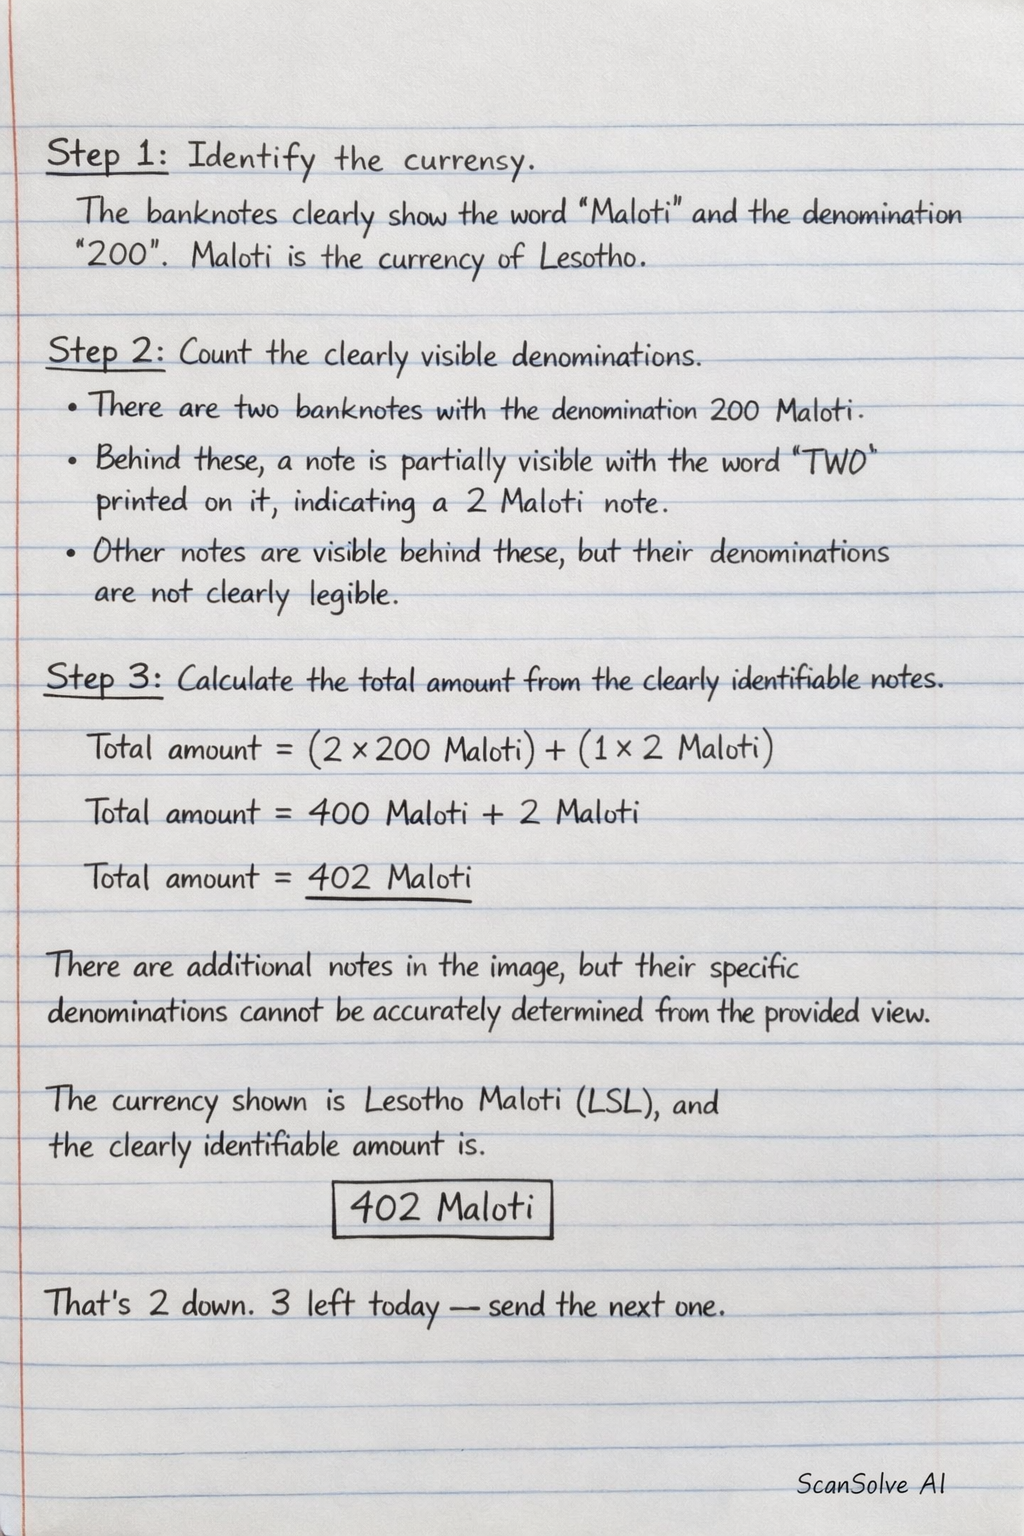 Step 1: Identify the currensy.
The banknotes clearly show the word "Maloti" and the denomination
"200". Maloti is the currency of Lesotho.
Step 2: Count the clearly visible denominations.
• There are two banknotes with the denomination 200 Maloti.
• Behind these, a note is partially visible with the word "TWO"
printed on it, indicating a 2 Maloti note.
• Other notes are visible behind these, but their denominations
are not clearly legible.
Step 3: Calculate the total amount from the clearly identifiable notes.
Total amount = (2 × 200 Maloti) + (1 × 2 Maloti)
Total amount = 400 Maloti + 2 Maloti
Total amount = 402 Maloti
There are additional notes in the image, but their specific
denominations cannot be accurately determined from the provided view.
The currency shown is Lesotho Maloti (LSL), and
the clearly identifiable amount is.
402 Maloti
That's 2 down. 3 left today — send the next one.
ScanSolve AI